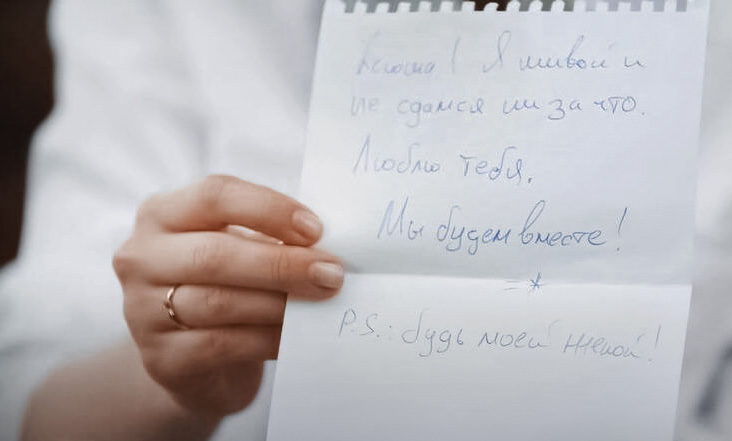 Ксюша! Я живой и
не сдамся ни за что.
Люблю тебя.
Мы будем вместе!
=*
P.S.: будь моей женой!